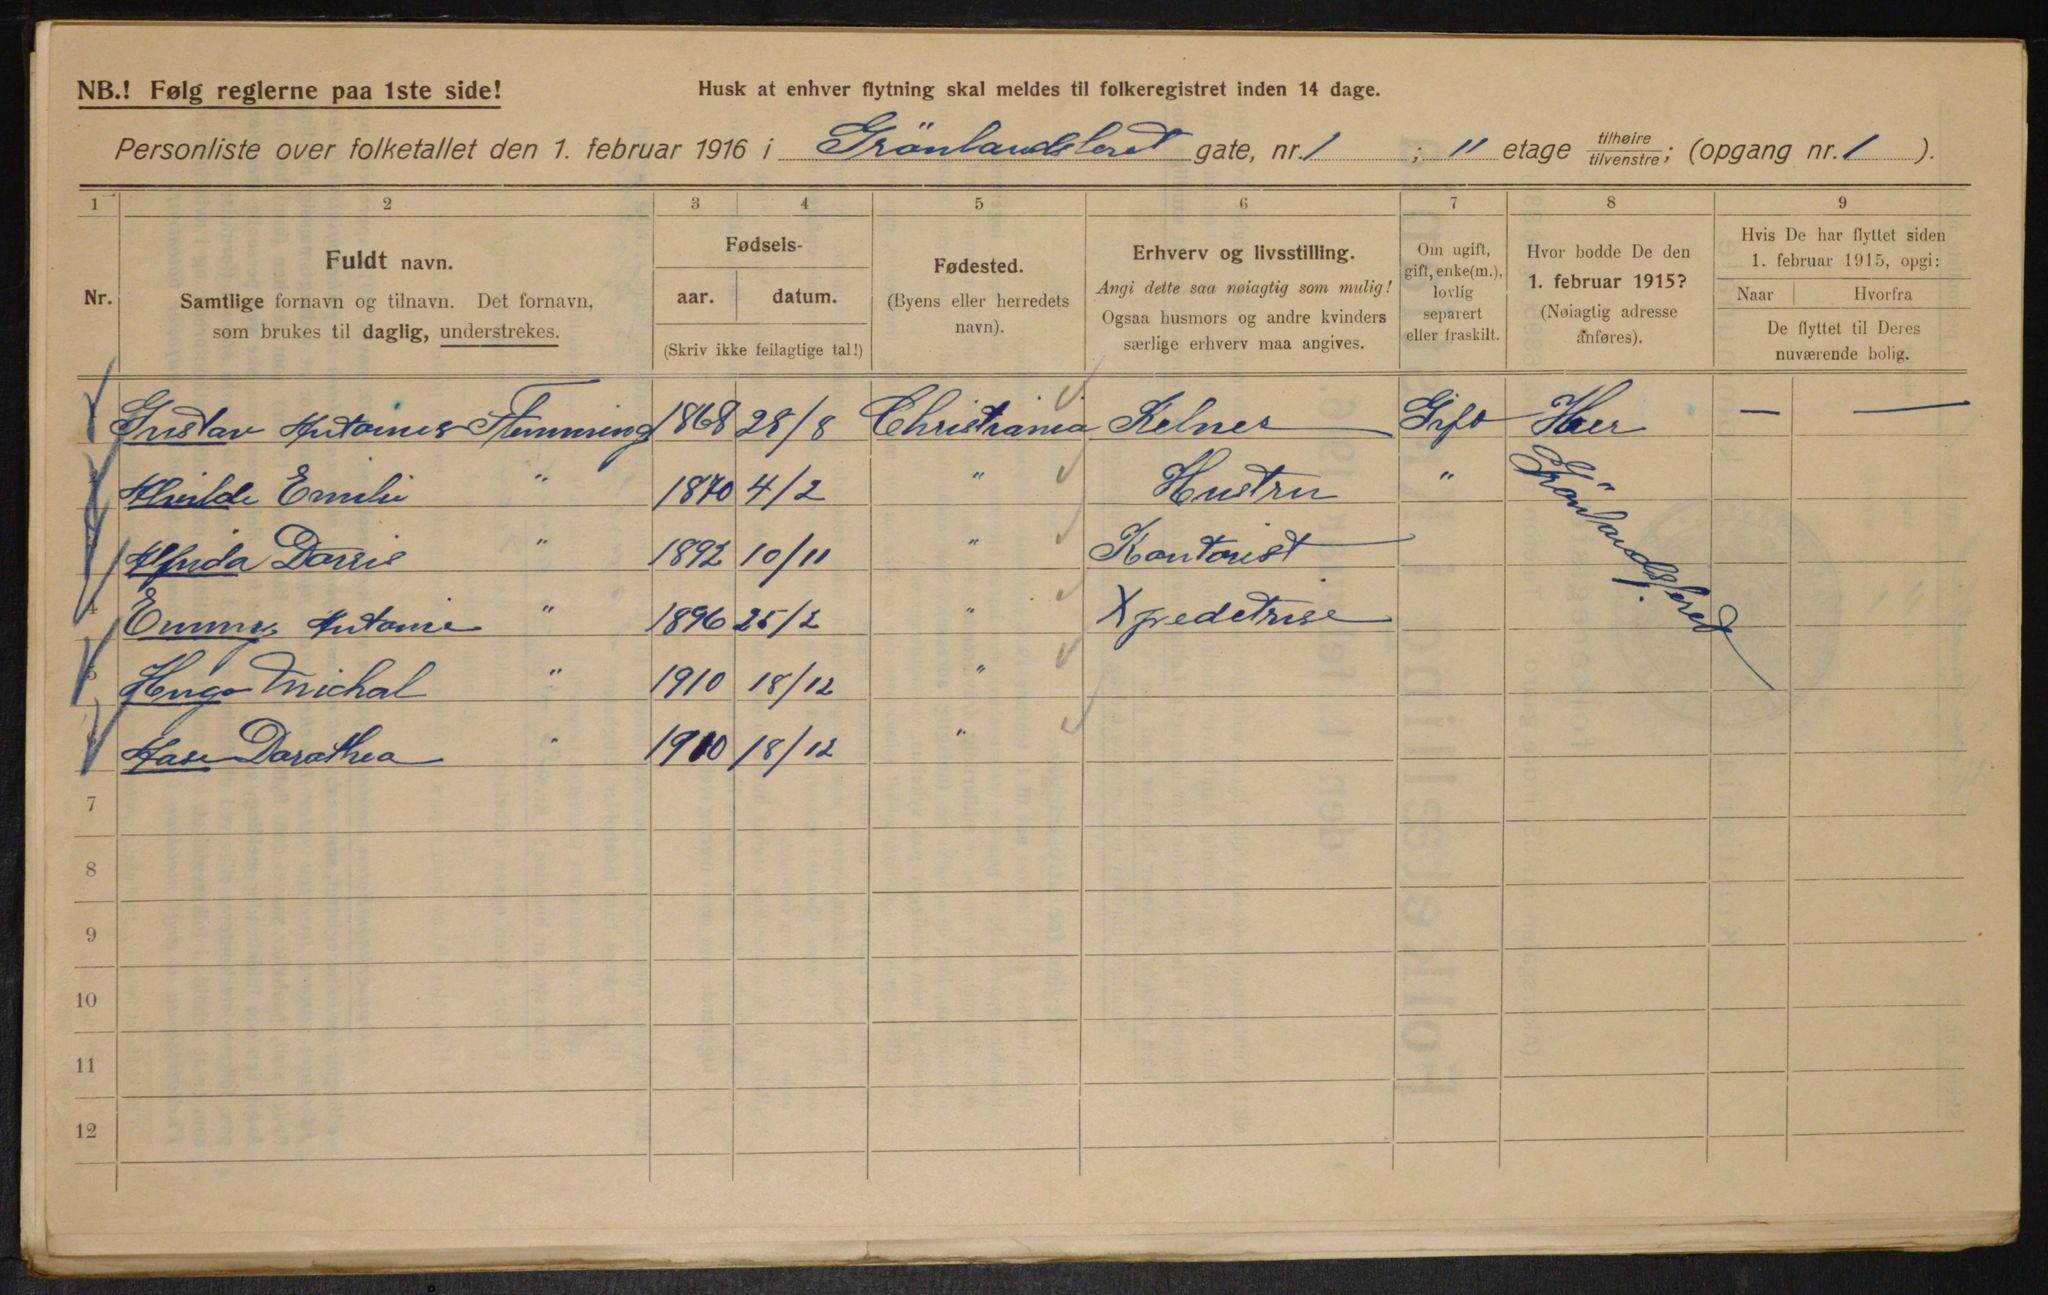 NB.! Følg reglerne paa 1ste side!
Husk at enhver flytning skal meldes til folkeregistret inden 14 dage.
Personliste over folketallet den 1. februar 1916 i Grönlandsleret gate, nr. 1 ; 11 etage tilhøire/tilvenstre; (opgang nr. 1 ).
1 2 3 4 5 6 7 8 9
Nr.
Fuldt navn.
Samtlige fornavn og tilnavn. Det fornavn,
som brukes til daglig, understrekes.
Fødsels-
aar. datum.
(Skriv ikke feilagtige tal!)
Fødested.
(Byens eller herredets
navn).
Erhverv og livsstilling.
Angi dette saa nøiagtig som mulig!
Ogsaa husmors og andre kvinders
særlige erhverv maa angives.
Om ugift,
gift, enke(m.),
lovlig
separert
eller fraskilt.
Hvor bodde De den
1. februar 1915?
(Nøiagtig adresse
anføres).
Hvis De har flyttet siden
1. februar 1915, opgi:
Naar Hvorfra
De flyttet til Deres
nuværende bolig.
1 Gustav Antonius Flemming 1868 28/8 Christiania Kelner Gift Her — —
2 Emilie " 1870 4/2 " Hustru "
Grönlandsleret 1.
3 Dorris " 1892 10/11 " Kontorist
4 Emmy Antonie " 1896 25/2 " Xpeditrise
5 Hugo Michal " 1910 18/12 "
6 Aase Dorothea " 1910 18/12 "
7
8
9
10
11
12